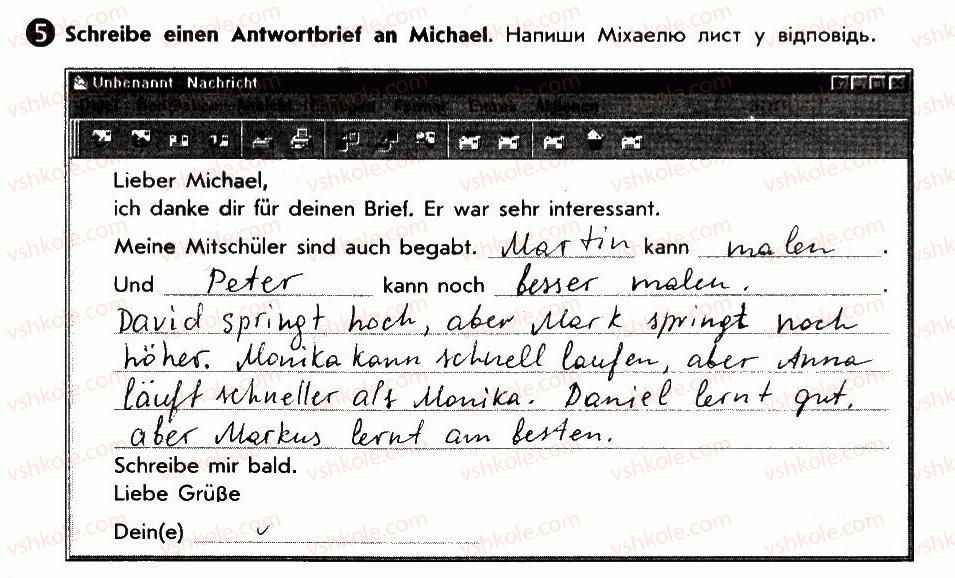 5 Schreibe einen Antwortbrief an Michael. Напиши Міхаелю лист у відповідь.
Unbenannt Nachricht
Lieber Michael,
ich danke dir für deinen Brief. Er war sehr interessant.
Meine Mitschüler sind auch begabt. Martin kann malen.
Und Peter kann noch besser malen. .
David springt hoch, aber Mark springt noch
höher. Monika kann schnell laufen, aber Anna
läuft schneller als Monika. Daniel lernt gut,
aber Markus lernt am besten.
Schreibe mir bald.
Liebe Grüße
Dein(e)